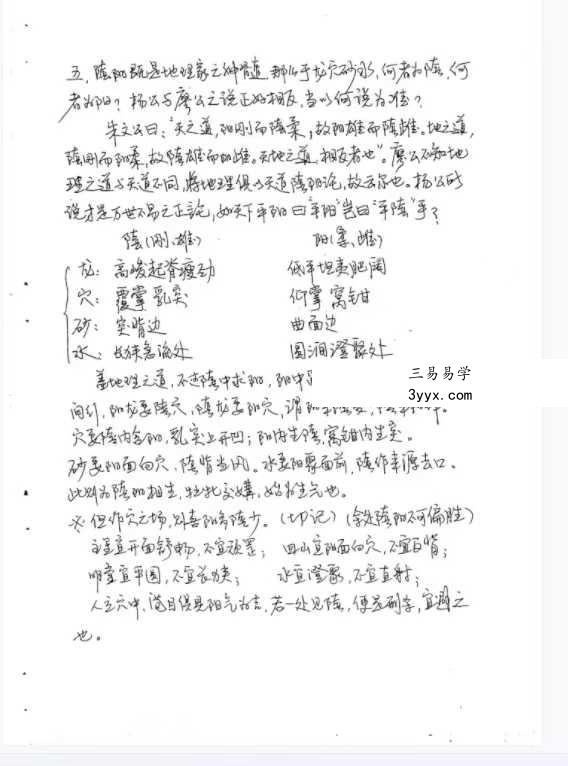 五、陰阳既是地理家之神髓, 那么于龙穴砂水, 何者为陰, 何
者为阳? 杨公与廖公之说正好相反, 当以何说为准?
朱文公曰:“天之道, 阳刚而陰柔, 故阳雄而陰雌。地之道,
陰刚而阳柔, 故陰雄而阳雌。天地之道, 相反者也”。廖公不知地
理之道与天道不同, 将地理俱以天道陰阳论, 故云尔也。杨公所
说才是万世不易之正论, 如天下平阳曰“平阳”岂曰“平陰”乎?
陰(刚、雄) 阳(柔、雌)
龙: 高峻起脊瘦劲 低平坦夷肥阔
穴: 覆掌 乳突 仰掌 窝钳
砂: 突背边 曲面边
水: 长狭急流处 圆润澄聚处
盖地理之道, 不过陰中求阳, 阳中
三易易学
3yyx.com
阳龙要陰穴, 陰龙要阳穴, 谓
穴要陰内含阳, 乳突上开凹; 阳内生陰, 窝钳内生突。
砂要阳面向穴, 陰背当风。水要阳聚面前, 陰作来源去口。
此则为陰阳相生, 牝牡交媾, 始为生气也。
※ 但作穴之场, 则喜阳多陰少。(切记)(余是陰阳不可偏胜)
主星宜开面舒畅, 不宜顽 四山宜阳面向穴, 不宜反背;
明堂宜平圆, 不宜长狭; 水宜澄聚, 不宜直射;
人立穴中, 满目俱是阳气为吉, 若一处见陰, 便是刑害, 宜避之
也。